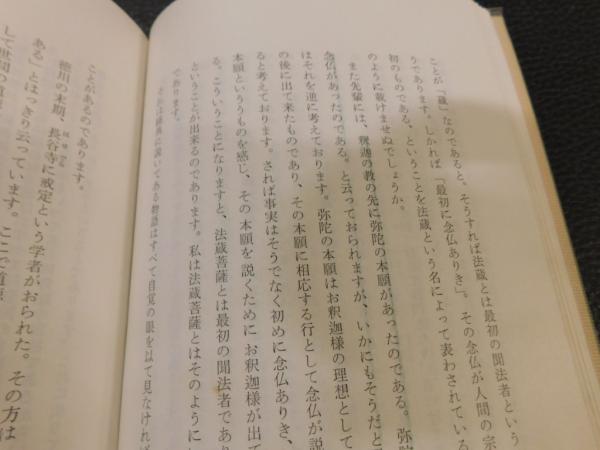 ことが「蔵」なのであると。そうすれば法蔵とは最初の聞法者という
うであります。しかれば「最初に念仏ありき」。その念仏が人間の宗
初のものである、ということを法蔵という名によって表わされている
のように戴けませぬでしょうか。
また先輩には、釈迦の教の先に弥陀の本願があったのである。弥
念仏があったのである。と云っておられますが、いかにもそうだと
はそれを逆に考えております。弥陀の本願はお釈迦様の理想として
の後に出て来たものであり、その本願に相応する行として念仏が説
ると考えております。されば事実はそうでなく初めに念仏ありき、
本願というものを感じ、その本願を説くために お釈迦様が出て
る。こういうことになりますと、法蔵菩薩とは最初の聞法者であ
ということが出来るのであります。私は法蔵菩薩とはそのように
であります。
経典に説いてある物語はすべて自覚の眼を以て見なければ
ことがあるのであります。
徳川の末期、長谷寺に戒定という学者がおられた。その方は
はせでら
ある」とはっきり云っています。ここで
して世間の